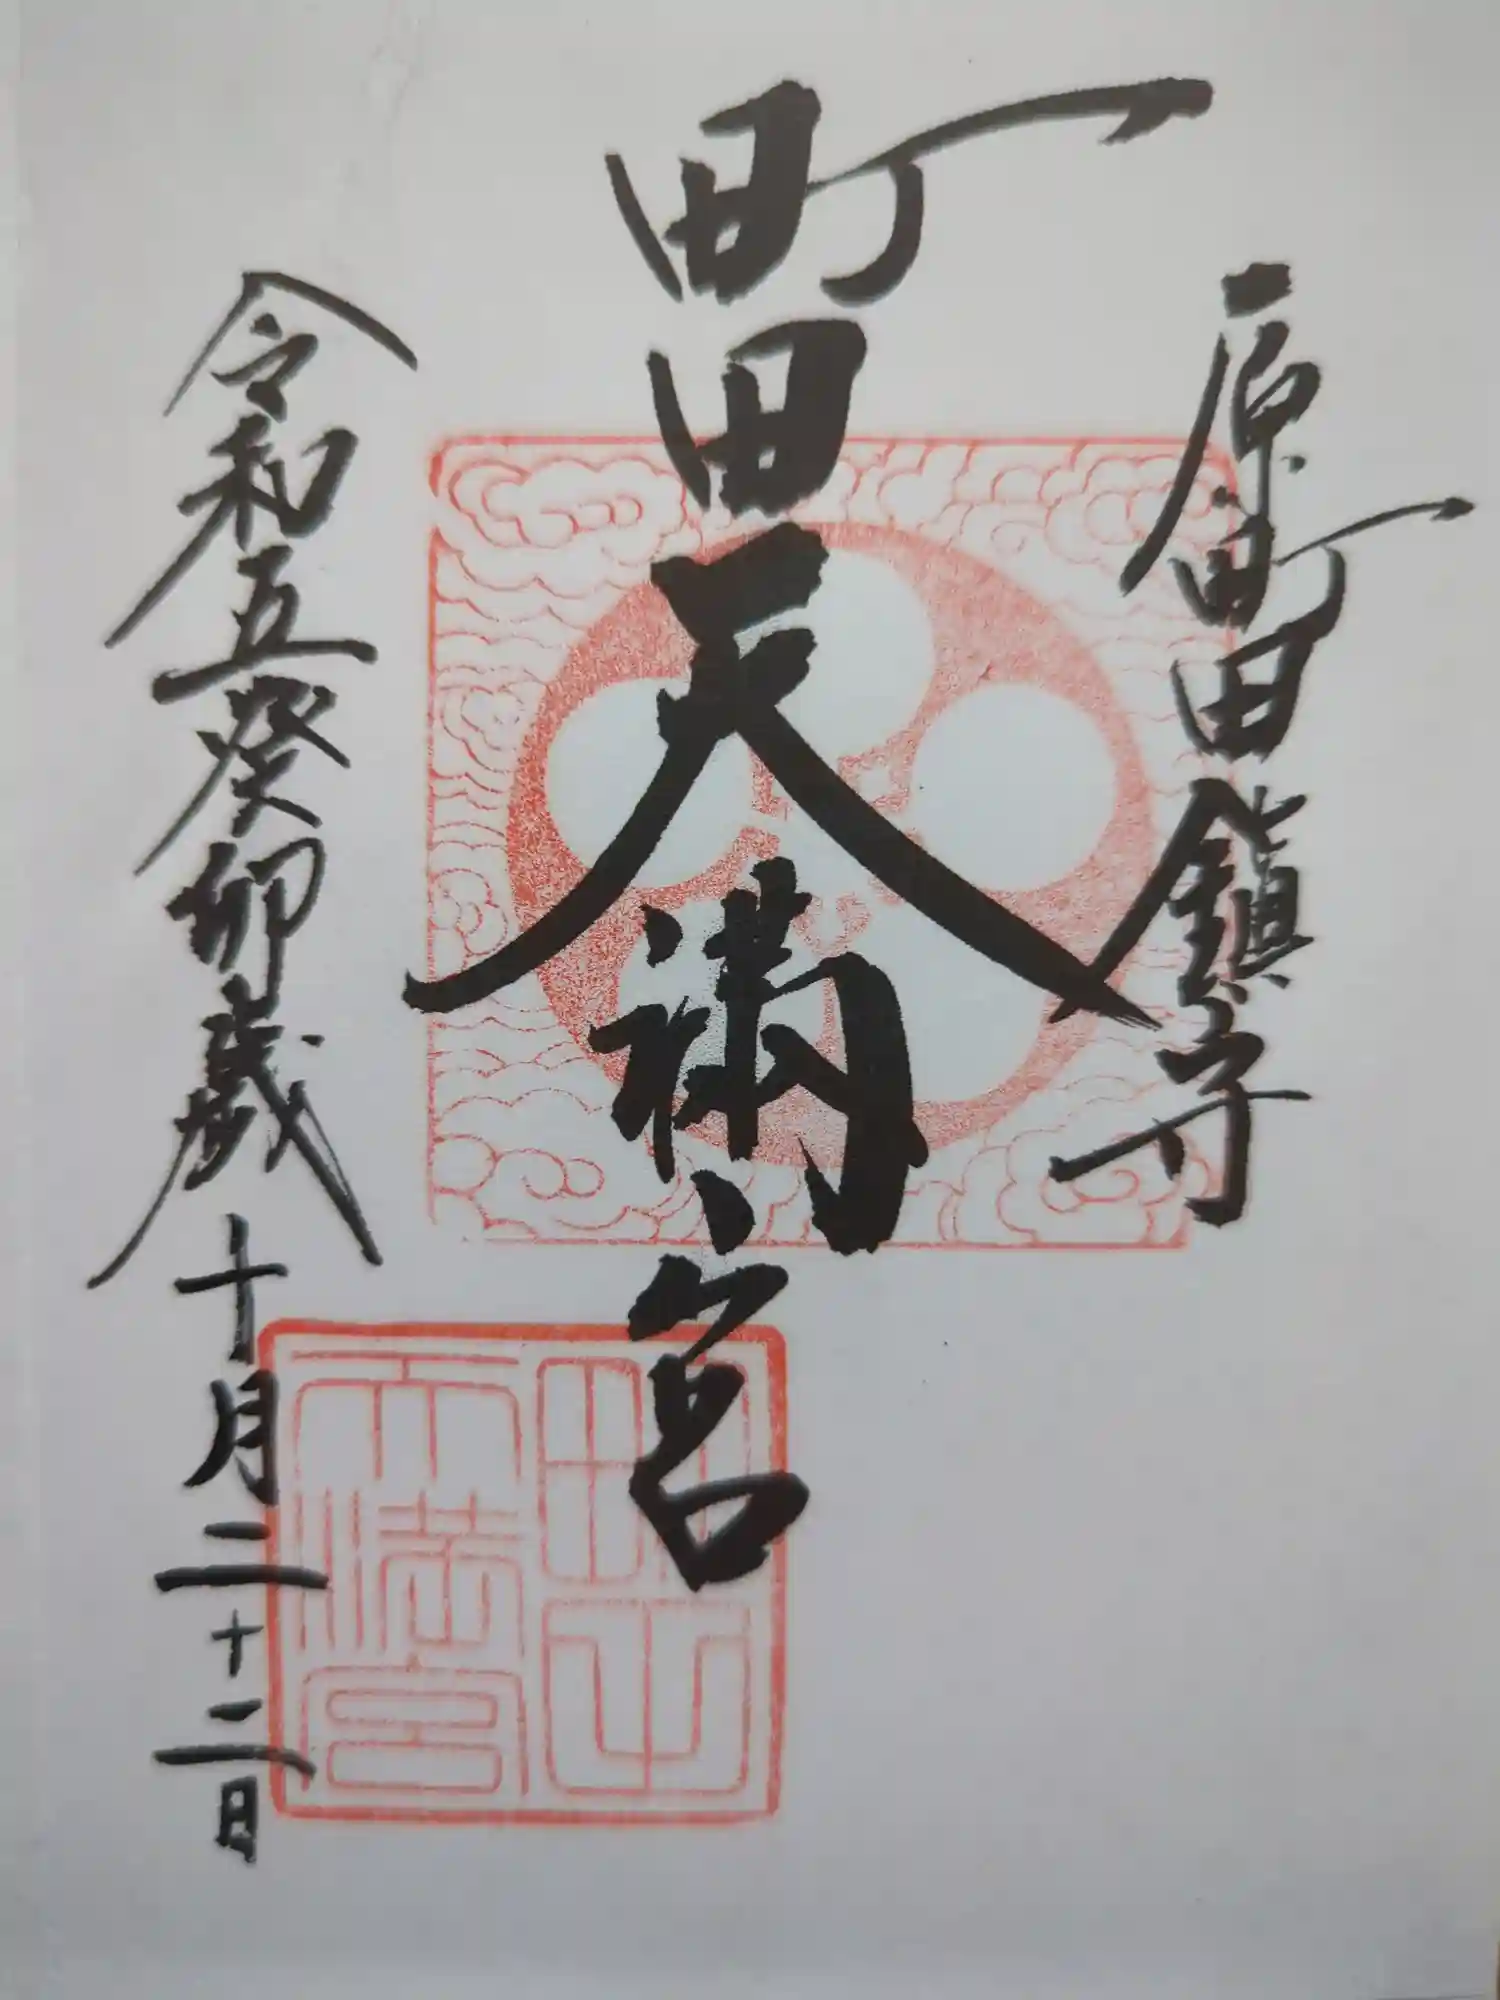 原町田鎮守
町田天満宮
令和五癸卯歳十月二十二日
町田
天満宮